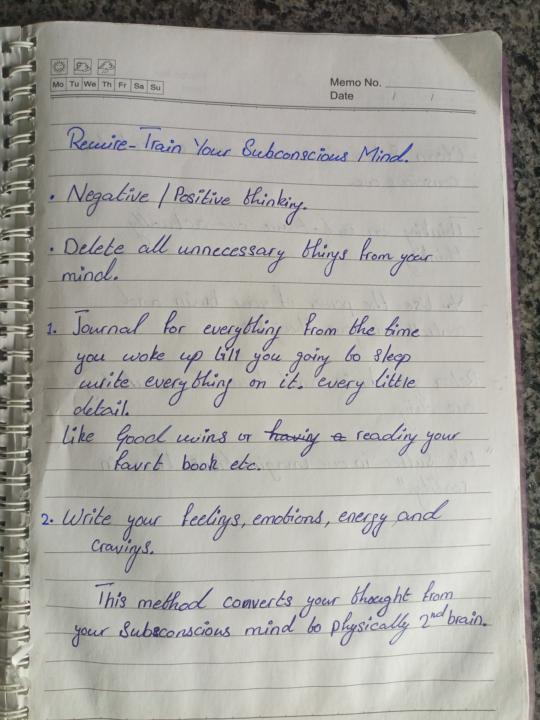 Mo Tu We Th Fr Sa Su
Memo No.
Date / /
Rewire-Train Your Subconscious Mind.
• Negative / Positive thinking.
• Delete all unnecessary things from your
mind.
1. Journal for everything from the time
you woke up till you going to sleep
write everything on it. every little
detail.
like Good wins or having a reading your
favrt book etc.
2. Write your feelings, emotions, energy and
cravings.
This method converts your thought from
your Subsconscious mind to physically 2nd brain.